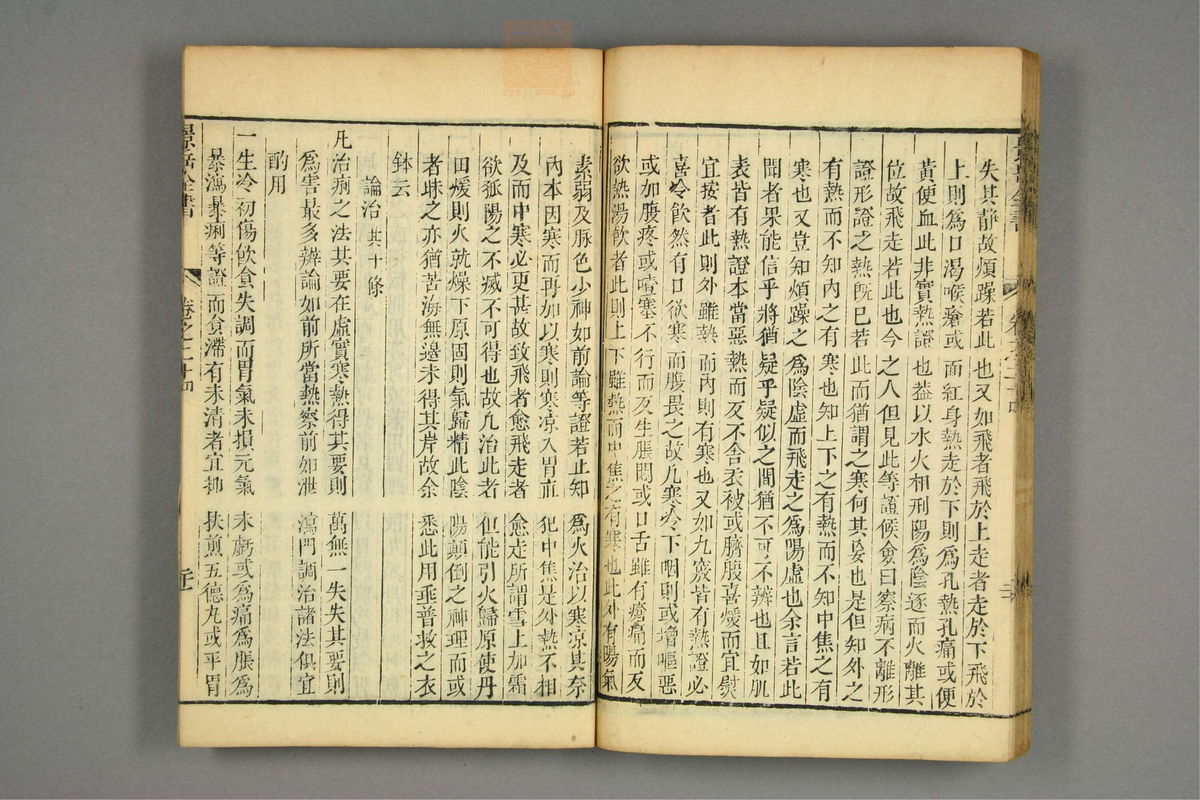 失其静故煩躁若此也又如飛者飛於上走者走於下飛於
上則為口渴喉瘡或面紅身熱走於下則為孔熱孔痛或便
黃便血此非實熱證也益以水火相刑陽為陰逐而火離其
位故飛走若此也今之人但見此等證候僉曰察病不離形
證形證之熱既已若此而猶謂之寒何其妄也是但知外之
有熱而不知內之有寒也知上下之有熱而不知中焦之有
寒也又豈知煩躁之為陰虛而飛走之為陽虛也余言若此
聞者果能信乎將猶疑乎疑似之間猶不可不辨也且如肌
表皆有熱證本當惡熱而反不舍衣被或臍腹喜煖而宜熨
宜按者此則外雖熱而內則有寒也又如九竅皆有熱證必
喜冷飲然有口欲寒而腹畏之故凡寒冷下咽則或增嘔惡
或如腹疼或噎塞不行而反生脹悶或口舌雖有瘡痛而反
欲熱湯飲者此則上下雖熱而中焦之有寒也此外有陽氣
素弱及脉色少神如前論等證若止知為火治以寒凉其奈
內本因寒而再加以寒則寒凉入胃直犯中焦是外熱不相
及而中寒必更甚故致飛者愈飛走者愈走所謂雪上加霜
欲孤陽之不滅不可得也故凡治此者但能引火歸原使丹
田煖則火就燥下原固則氣歸精此陰陽顛倒之神理而或
者昧之亦猶苦海無邊未得其岸故余悉此用垂普救之衣
鉢云
論治 共十條
凡治痢之法其要在虛實寒熱得其要則萬無一失失其要則
為害最多辨論如前所當熱察前如泄瀉門調治諸法俱宜
酌用
一生冷初傷飲食失調而胃氣未損元氣未虧或為痛為脹為
暴瀉暴痢等證而食滯有未清者宜抑扶煎五德丸或平胃
景岳全書
卷之二十四